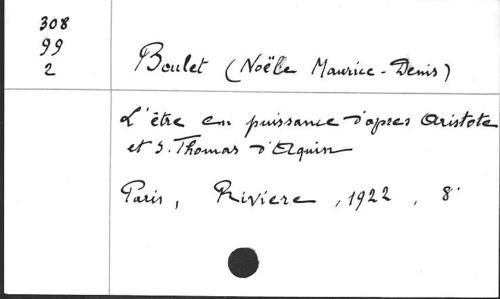 308
99
2
Boulet (Noële Maurice-Denis)
L'être en puissance d'apres Aristote
et S. Thomas d'Aquin
Paris, Riviere, 1922, 8°